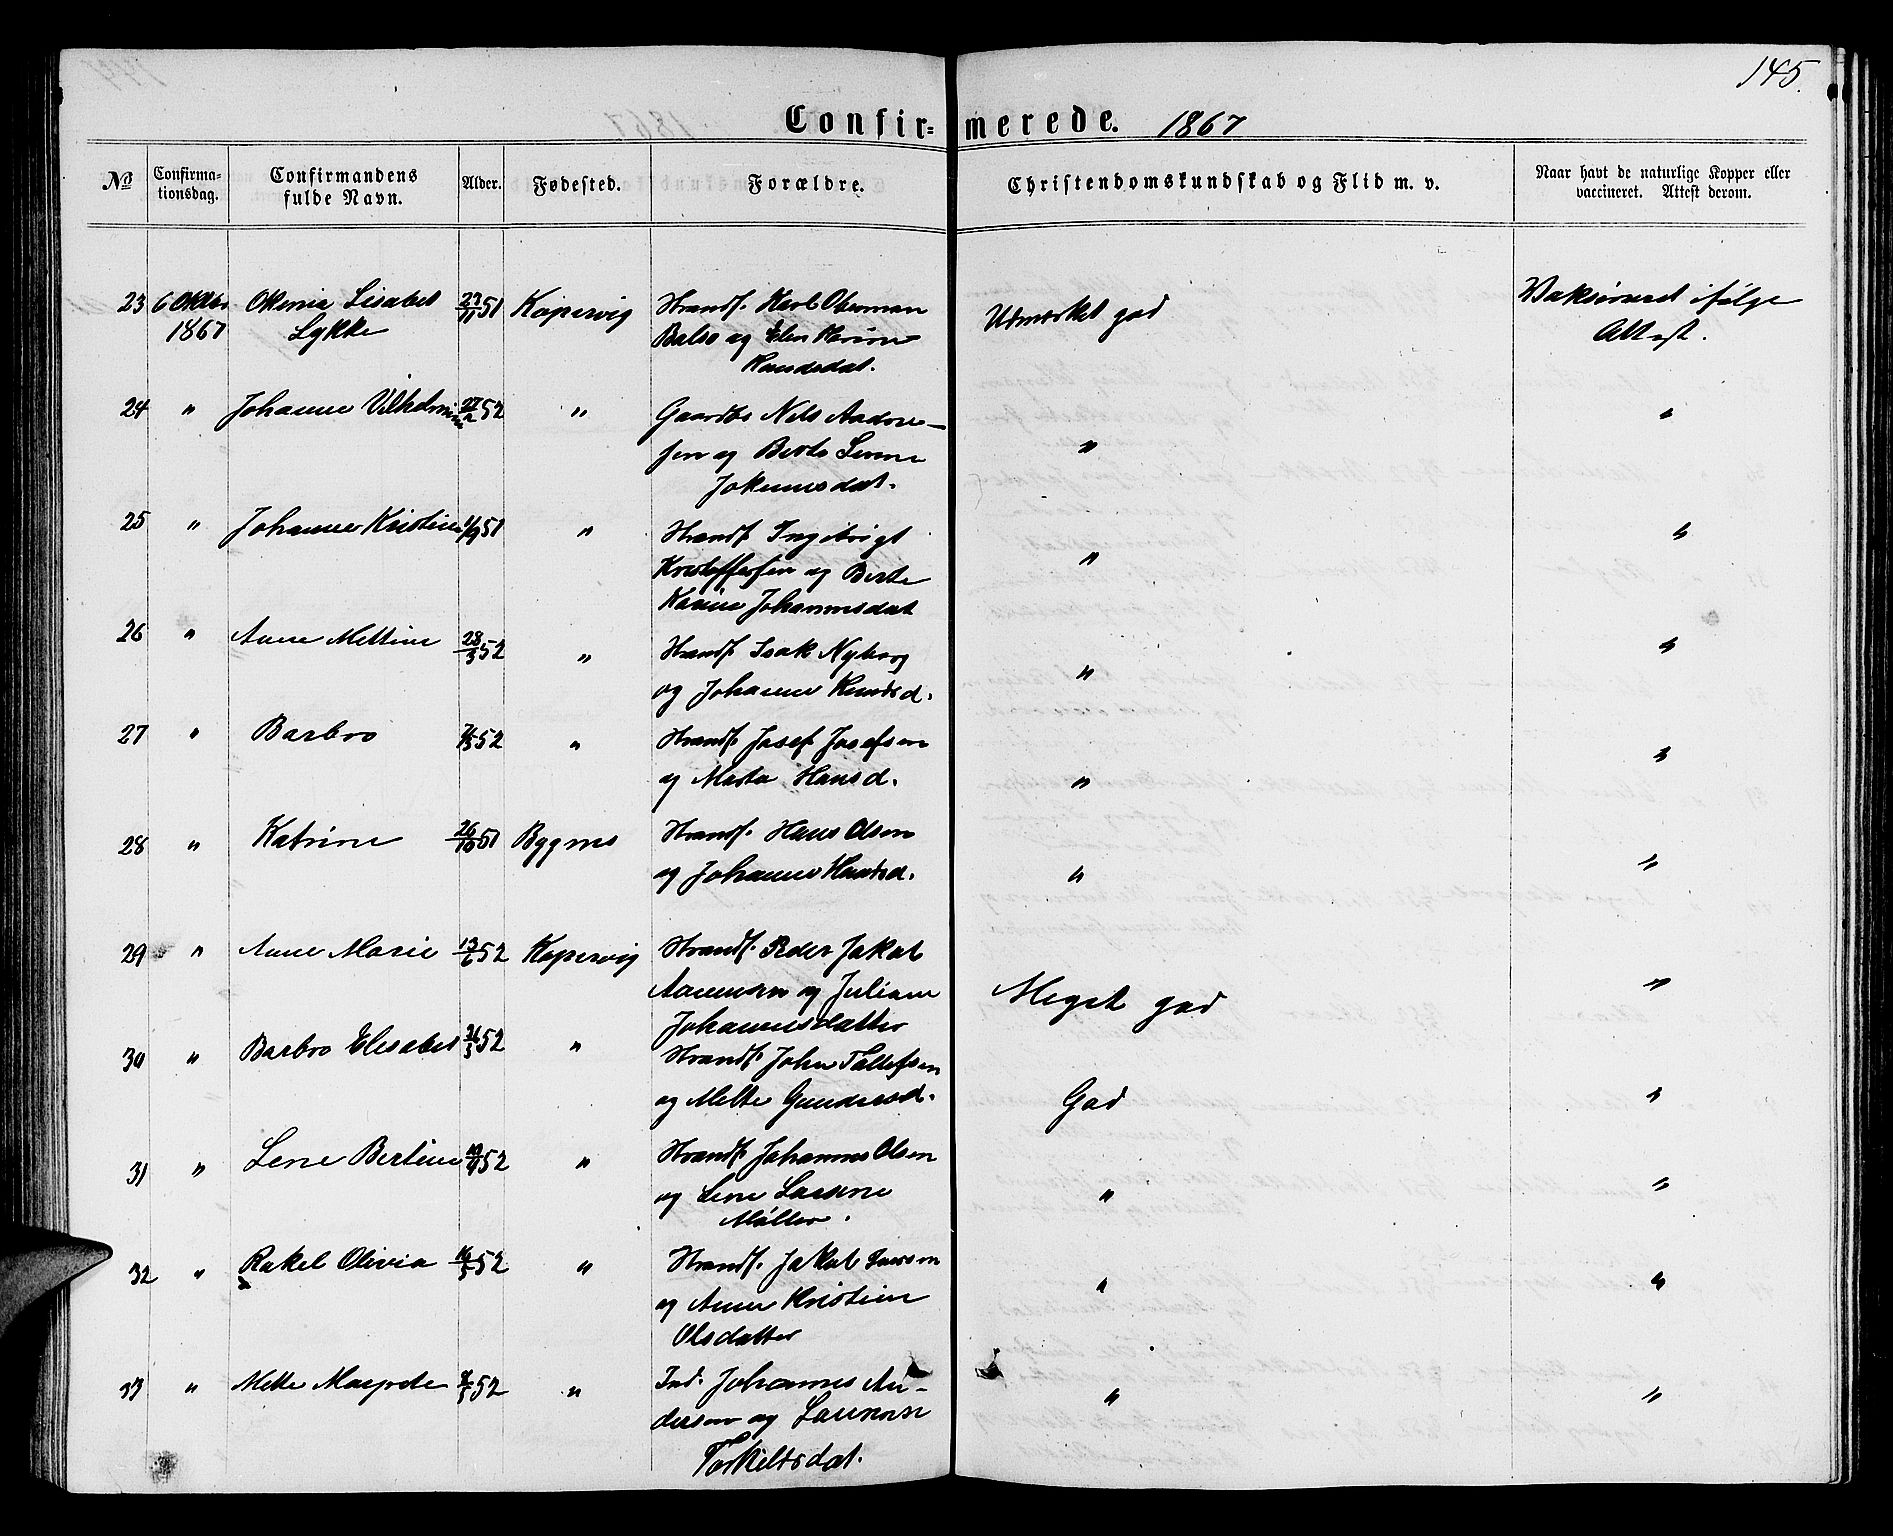 145.
Confir= merede. 1867
No Confirma-tionsdag. Confirmandens fulde Navn. Alder. Fødested. Forældre. Christendomskundskab og Flid m. v. Naar havt de naturlige Kopper eller vaccineret. Attest derom.
23 6 Oktbr Lisabet 51 Kopervig Strandf. Karl Oberman Udmærket god Vaksineret ifølge
1867 Lykke og Elen Attest.
Knudsdat.
24 " Johanne Vilhelmine 52 " Gaardbr Nils Andrea- " "
sen og Berte Serine
Johannesdat.
25 " Johanne Kristine 51 " Strandf. Ingebrigt " "
Kristoffersen og Berte
Karine Johannesdat
26 " Anne Mettine 28/3 52 " Strandf. Isak Nyborg " "
og Johanne Knudsd.
27 " Barbro 52 " Strandf. Josef Josefsen " "
og Marta Hansd.
28 " Katrine 26/10 51 Bygnes Strandf. Hans Olsen " "
og Johanne Knutsd.
29 " Anne Marie 13/6 52 Kopervig Strandf. Peder Jakob Meget god "
Aanensen og Juliane
Johannesdatter
30 " Barbro Elisabet 52 " Strandf. John Tollefsen God "
og Mette Gundersd.
31 " Lene Bertine 52 " Strandf. Johannes Olsen " "
og Lene
Møller.
32 " Rakel Olivia 16/5 52 " Strandf. Jakob Iversen " "
og Anne Kristine
Olsdatter
33 " Mette Margrete 52 " Ind. Johannes An- " "
dersen og
Torkildsdat.